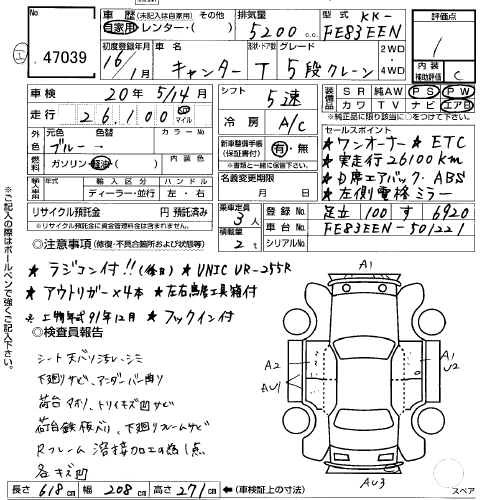 No.
47039
車歴 (未記入は自家用) その他
自家用 レンター・( )
排気量
5200 c.c.
型式 KK-
FE83EEN
評価点
1
初度登録年月
16/1月
車名
キャンター T
形状・ドア数
グレード
5段クレーン
2WD
4WD
内装
補助評価
C
車検 20年 5/14月
シフト
5速
装備品
SR 純AW PS PW
カワ TV ナビ エア図
*純正品に限り該当に○をつけて下さい。
走行 26,100 km マイル
冷房 A/C
セールスポイント
★ワンオーナー ★ETC
★実走行26100km
★D席エアバック・ABS
★左側電格ミラー
外色
元色 色替
ブルー →
カラーNo.
燃料
ガソリン・軽油・( )
内装色
新車整備手帳
(保証書付)
有・無
*書類と一緒に保管して下さい。
輸入車用
年式 輸入区分 ハンドル
ディーラー・並行 左・右
名義変更期限
月 日
リサイクル預託金 円 預託済み
※リサイクル預託金に資金管理料金は含まれません。
乗車定員
3人
積載量
2t
登録No. 足立 100 す 6920
車台No. FE83EEN-501221
シリアルNo.
◎注意事項 (修復・不具合箇所および状態等)
★ラジコン付!! (後日) ★UNIC UR-255R
★アウトリガー×4本 ★左右鳥居工具箱付
※上物年式91年12月 ★フックイン付
◎検査員報告
シート天バリヨゴレ・シミ
下廻リサビ、アンダーバー曲り
荷台鉄板バリ、下廻りフレームサビ
Rフレーム溶接加工の為1点
各キズ凹
A1
A2
AU1
A1
U2
AU3
スペア
長さ 618 cm 幅 208 cm 高さ 271 cm ←(車検証上の寸法)
※ご記入の際はボールペンで強くご記入下さい。